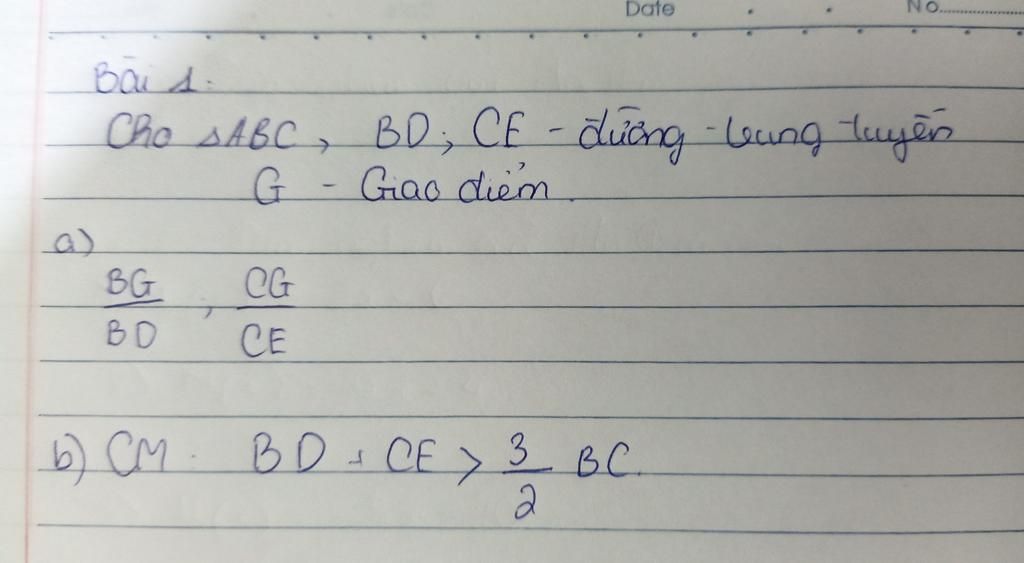 Date No
Bài 1:
Cho ΔABC, BD; CE - đường trung tuyến
G - Giao điểm.
a)
BG/BD, CG/CE
b) CM. BD + CE > 3/2 BC.